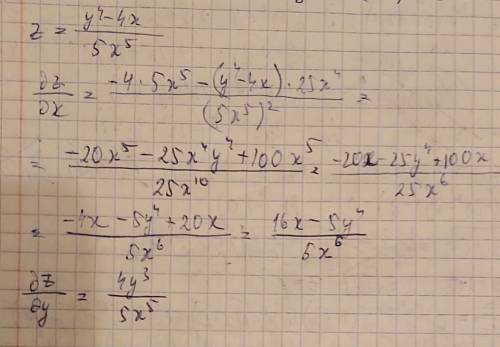 z = (y⁴-4x)/(5x⁵)
∂z/∂x = (-4·5x⁵-(y⁴-4x)·25x⁴)/((5x⁵)²) =
= (-20x⁵-25x⁴y⁴+100x⁵)/(25x¹⁰) = (-20x-25y⁴+100x)/(25x⁶)
= (-4x-5y⁴+20x)/(5x⁶) = (16x-5y⁴)/(5x⁶)
∂z/∂y = (4y³)/(5x⁵)